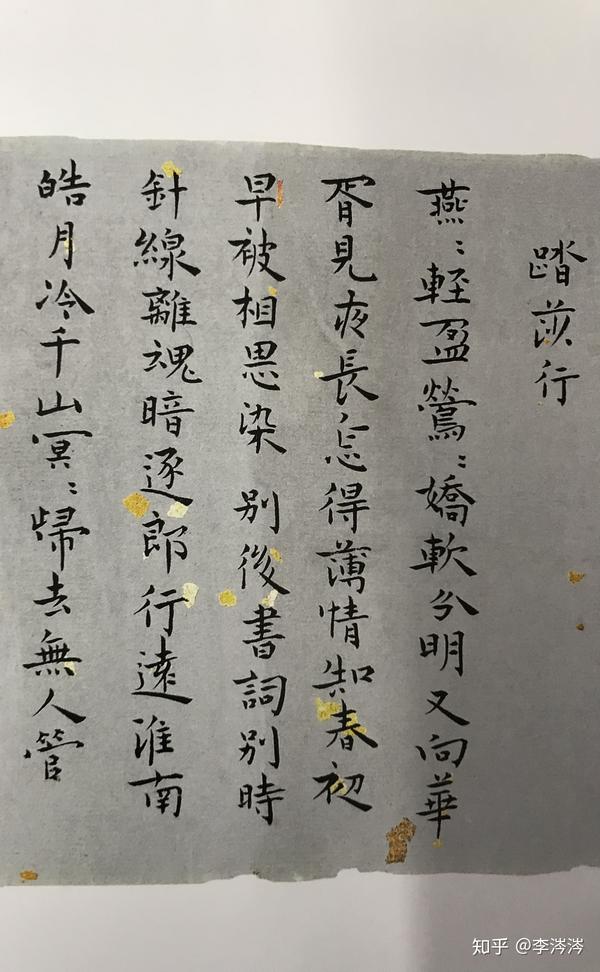 踏莎行
燕〻輕盈鶯〻嬌軟分明又向華
胥見夜長怎得薄情知春初
早被相思染 別後書詞別時
針線離魂暗逐郎行遠淮南
皓月冷千山冥〻歸去無人管
知乎 @李涔涔